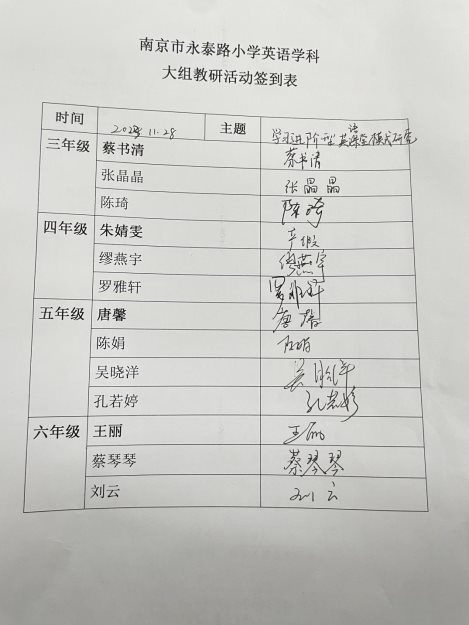 南京市永泰路小学英语学科
大组教研活动签到表
时间 2023.11.28 主题 学习进阶型英语课堂模式研究
三年级 蔡书清 蔡书清
张晶晶 张晶晶
陈琦 陈琦
四年级 朱婧雯 产假
缪燕宇 缪燕宇
罗雅轩 罗雅轩
五年级 唐馨 唐馨
陈娟
吴晓洋 吴晓洋
孔若婷 孔若婷
六年级 王丽 王丽
蔡琴琴 蔡琴琴
刘云 刘云